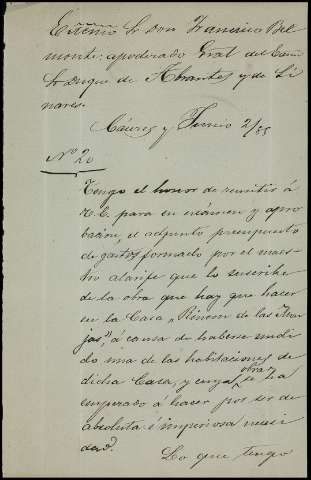 Excmo Sr Don Francisco Bel
monte: apoderado Gral del Excmo
Sr Duque de Abrantes y de Li
nares.
Cáceres y Junio 2/85
Nº 20
Tengo el honor de remitir á
V.E. para su exámen y apro
bacion, el adjunto presupuesto
de gastos formado por el maes-
tro alarife que lo suscribe
de la obra que hay que hacer
en la Casa "Rincon de las Mon
jas", á causa de haberse undi
do una de las habitaciones de
dicha Casa, y cuya obra se ha
empezado á hacer por ser de
absoluta é imperiosa necesi
dad.
Lo que tengo